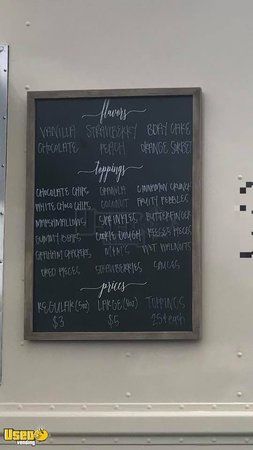 flavors
VANILLA STRAWBERRY BDAY CAKE
CHOCOLATE PEACH ORANGE SORBET
toppings
CHOCOLATE CHIPS GRANOLA CINNAMON CRUNCH
WHITE CHOC CHIPS COCONUT FRUITY PEBBLES
MARSHMALLOWS SPRINKLES BUTTERFINGER
GUMMY BEARS COOKIE DOUGH REESES PIECES
GRAHAM CRACKERS M&M'S WET WALNUTS
OREO PIECES STRAWBERRIES SAUCES
prices
REGULAR (5oz) LARGE TOPPINGS
$3 $5 25¢ each
Used
vending